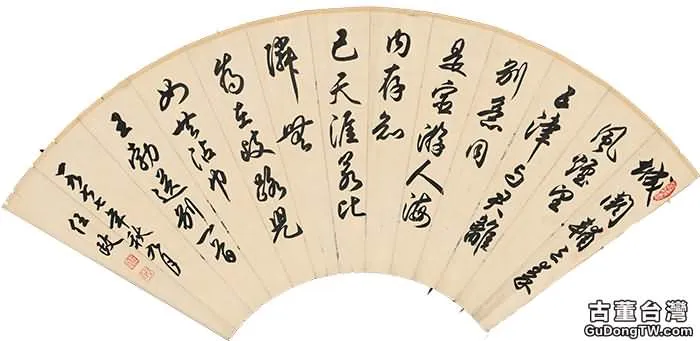 城闕輔三秦
風煙望
五津与君離
别意同
是宦游人海
内存知
己天涯若比
隣無
為在歧路児
女共沾巾
王勃送别一首
一九七七年秋九月
任政
古董台灣
GuDongTW.com